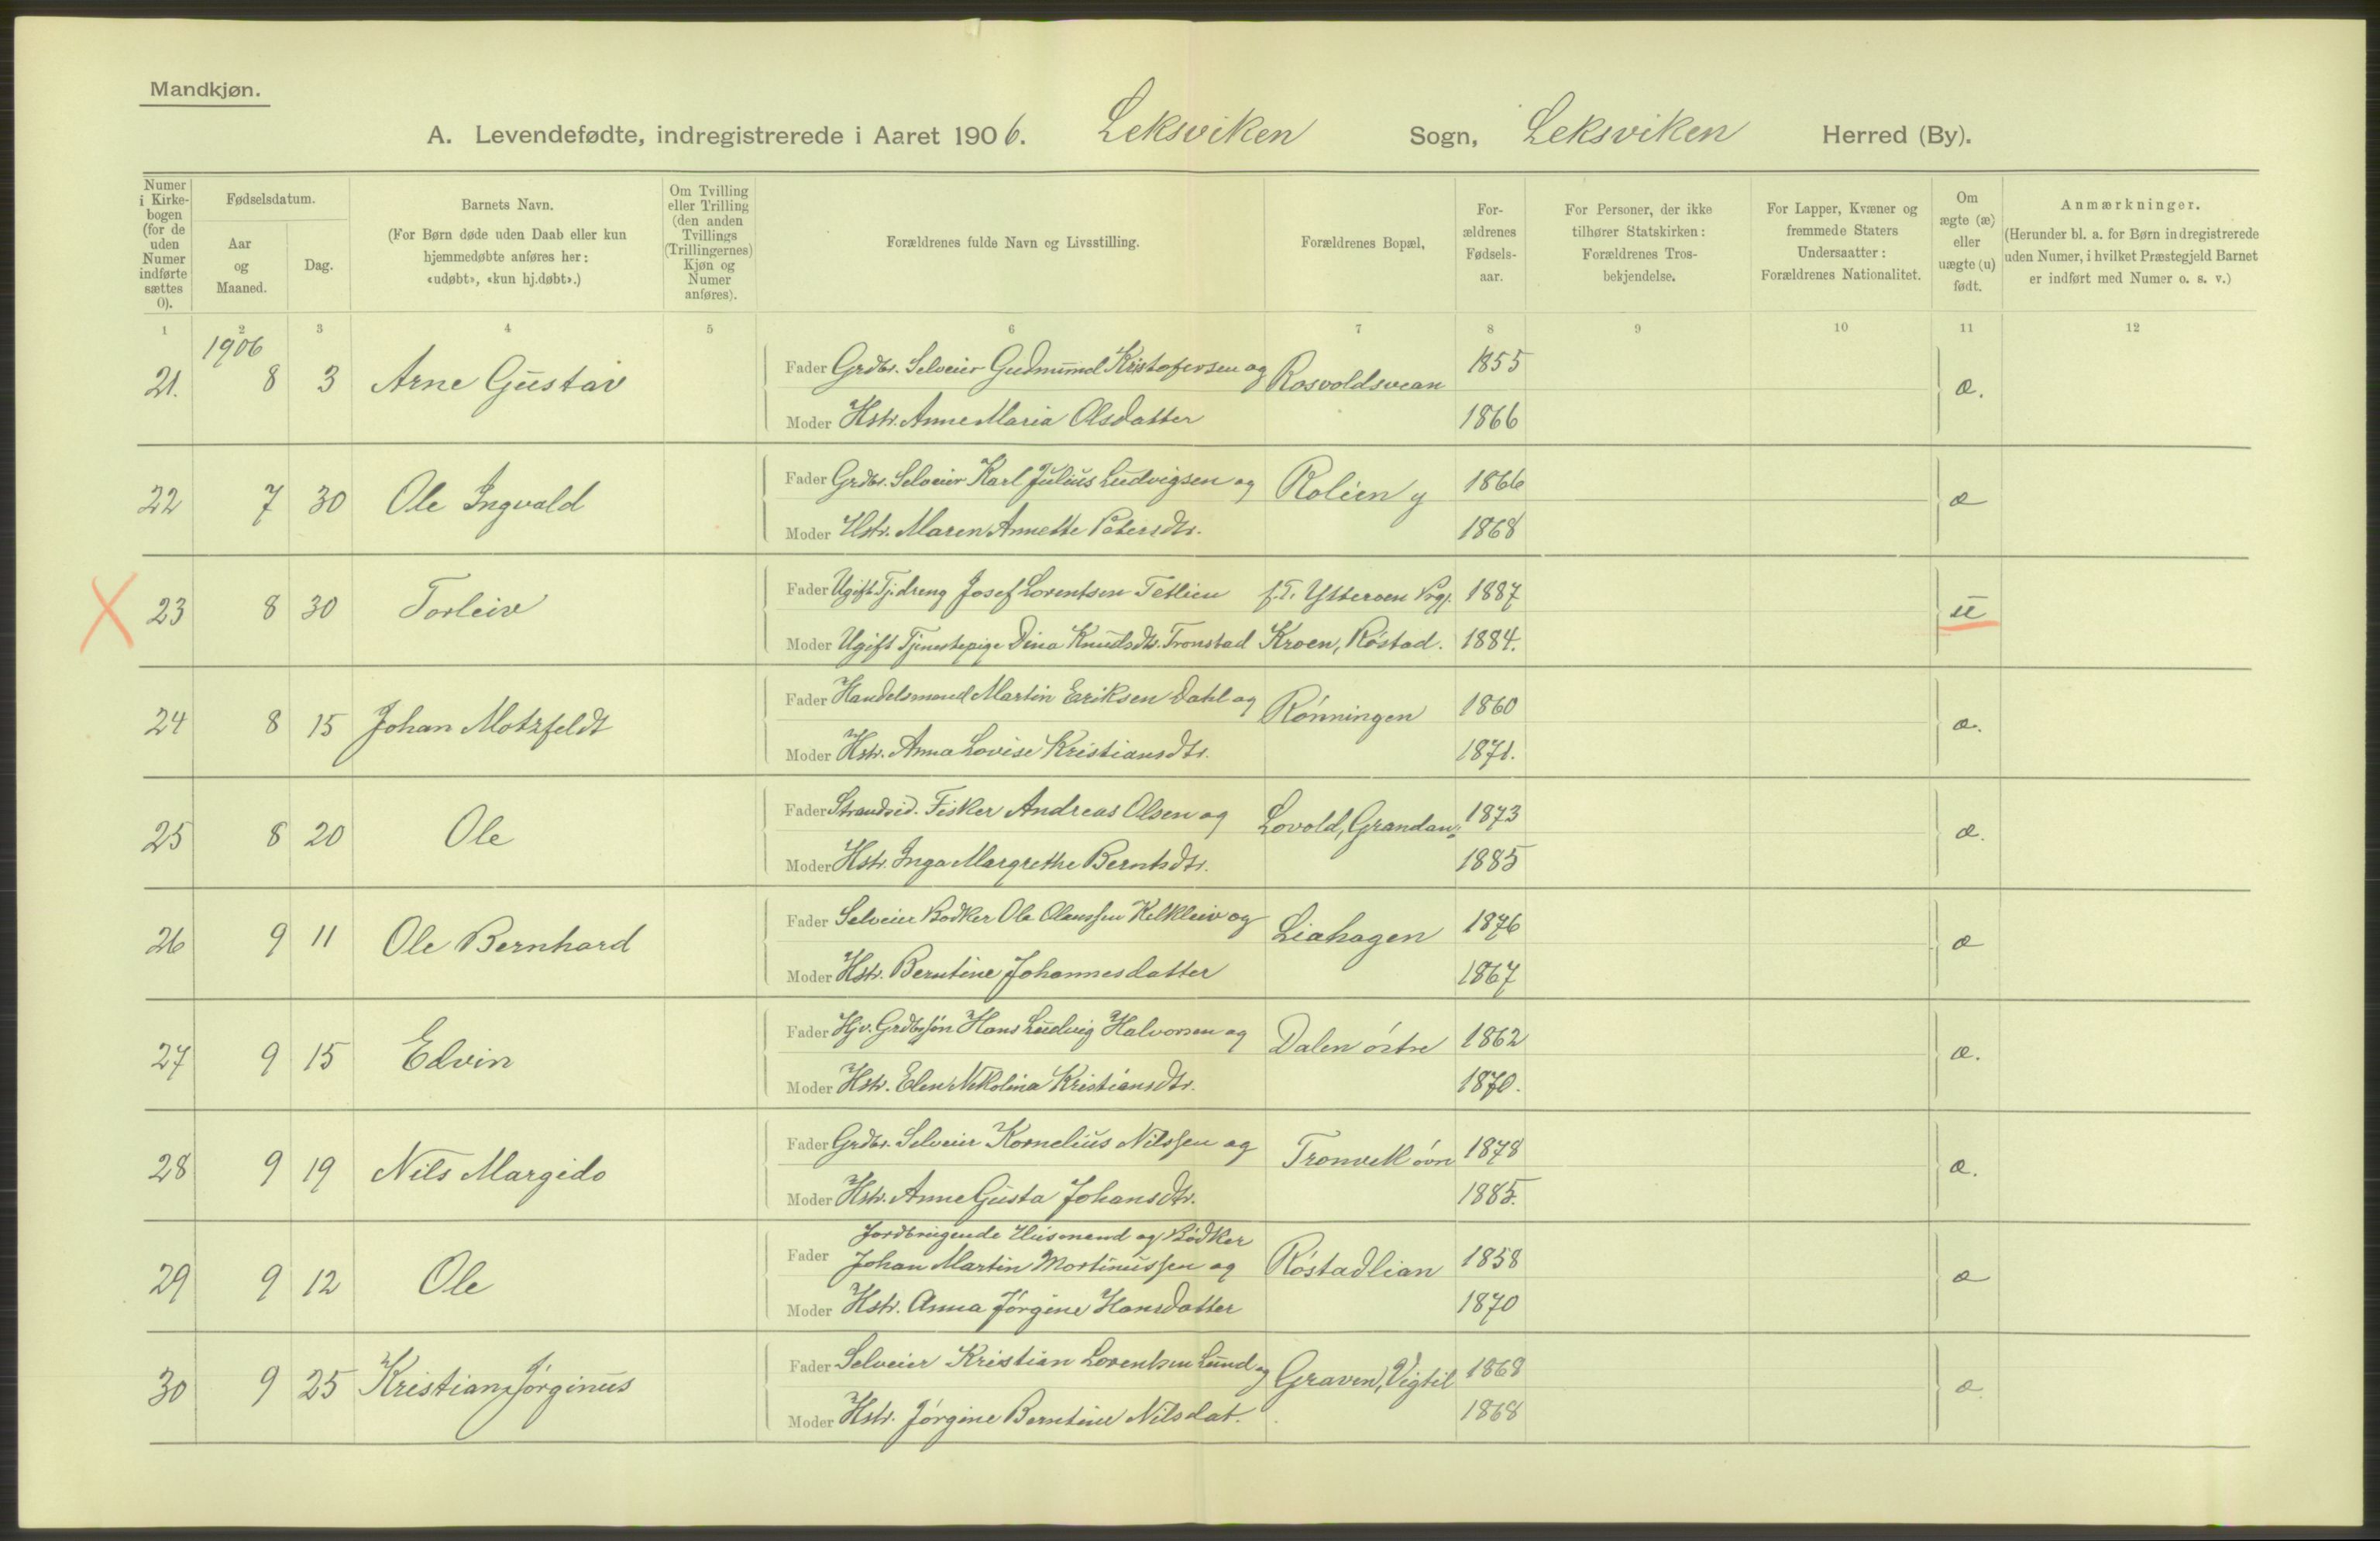 Mandkjøn.
A. Levendefødte, indregistrerede i Aaret 1906. Leksviken Sogn, Leksviken Herred (By).
Numer i Kirke-bogen (for de uden Numer indførte sættes 0).
Fødselsdatum.
Aar og Maaned.
Dag.
Barnets Navn.
(For Børn døde uden Daab eller kun hjemmedøbte anføres her: «udøbt», «kun hj.døbt».)
Om Tvilling eller Trilling (den anden Tvillings (Trillingernes) Kjøn og Numer anføres).
Forældrenes fulde Navn og Livsstilling.
Forældrenes Bopæl,
For-ældrenes Fødsels-aar.
For Personer, der ikke tilhører Statskirken: Forældrenes Tros-bekjendelse.
For Lapper, Kvæner og fremmede Staters Undersaatter: Forældrenes Nationalitet.
Om ægte (æ) eller uægte (u) født.
Anmærkninger.
(Herunder bl. a. for Børn indregistrerede uden Numer, i hvilket Præstegjeld Barnet er indført med Numer o. s. v.)
1 2 3 4 5 6 7 8 9 10 11 12
1906
21. 8 3 Arne Gustav Fader Grdbr. Selveier Gudmund Kristofersen og Rosvoldsvean 1855 æ.
Moder Hstr. Anne Maria Olsdatter 1866
22 7 30 Ole Ingvald Fader Grdbr. Selveier Karl Julius Ludvigsen og Rolien y 1866 æ
Moder Hstr. Maren Annette Petersdtr. 1868
X 23 8 30 Torleiv Fader Ugift Tj.dreng Josef Lorentsen Tetlien f. T. Ytterøen Prgj. 1887 u
Moder Ugift Tjenestepige Dina Knudsdtr. Tronstad Kroen, Røstad. 1884.
24 8 15 Johan Motzfeldt Fader Handelsmand Martin Eriksen Dahl og Rønningen 1860 æ.
Moder Hstr. Anna Lovise Kristiansdtr. 1871.
25 8 20 Ole Fader Strandsid. Fisker Andreas Olsen og Lovold, Grandan. 1873 æ.
Moder Hstr. Inga Margrethe Berntsdtr. 1885
26 9 11 Ole Bernhard Fader Selveier Bødker Ole Olaussen og Liahagen 1876 æ
Moder Hstr. Berntine Johannesdatter 1867
27 9 15 Edvin Fader Hjv. Grdbrsøn Hans Ludvig Halvorsen og Dalen østre 1862 æ.
Moder Hstr. Elen Nikolina Kristiansdtr. 1870.
28 9 19 Nils Margido Fader Grdbr. Selveier Kornelius Nilssen og Tronvik øvre 1878 æ.
Moder Hstr. Anne Gusta Johansdtr. 1885.
Jordbrugende Husmand og Bødker
29 9 12 Ole Fader Johan Martin Mortinussen og Røstadlian 1858 æ
Moder Hstr. Anna Jørgine Hansdatter 1870
30 9 25 Kristian Jørginus Fader Selveier Kristian Lorentsen Lund og Graven, Vigtil 1868 æ.
Moder Hstr. Jørgine Berntine Nilsdat. 1868